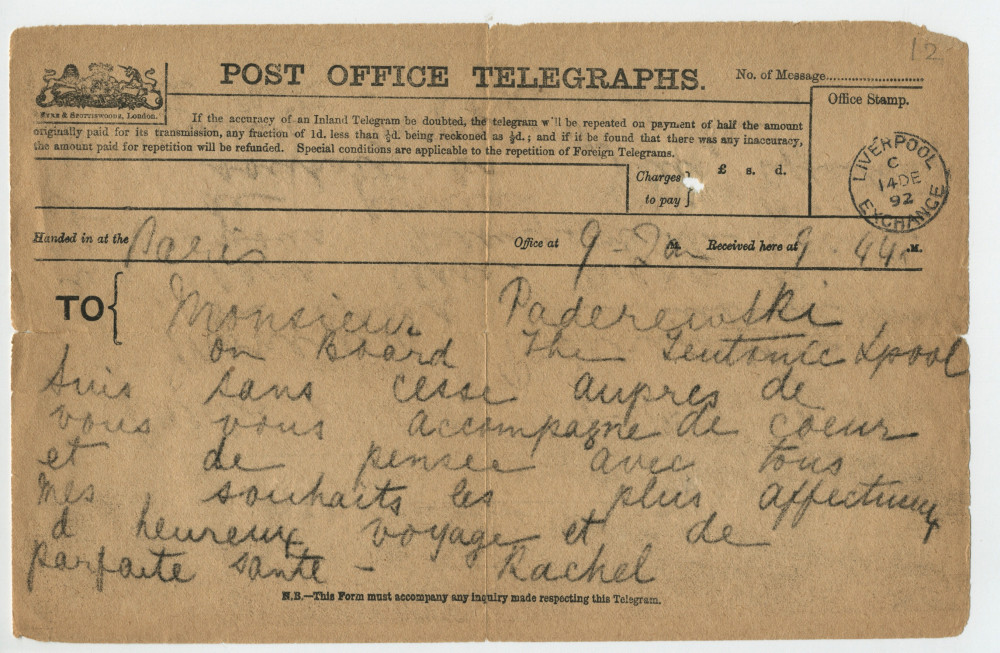 12
POST OFFICE TELEGRAPHS.
No. of Message
EYRE & SPOTTISWOODE, London.
Office Stamp.
If the accuracy of an Inland Telegram be doubted, the telegram w'll be repeated on payment of half the amount
originally paid for its transmission, any fraction of 1d. less than ½d. being reckoned as ½d.; and if it be found that there was any inaccuracy,
the amount paid for repetition will be refunded. Special conditions are applicable to the repetition of Foreign Telegrams.
Charges to pay } £ s. d.
LIVERPOOL
C
14 DE
92
EXCHANGE
Handed in at the Paris Office at 9-2 M. Received here at 9.44 .M.
TO { Monsieur Paderewski
on Board The Teutonic Lpool
Suis sans cesse aupres de
vous vous accompagne de coeur
et de pensee avec tous
mes souhaits les plus affectueux
d heureux voyage et de
parfaite sante - Rachel
N.B.—This Form must accompany any inquiry made respecting this Telegram.